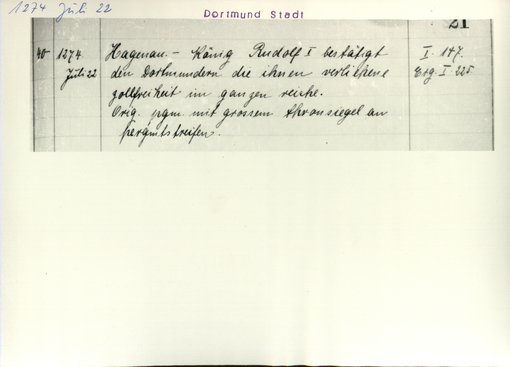 1274 Juli 22
Dortmund Stadt
21
40 1274 Hagenau. – König Rudolf I bestätigt I. 147.
Juli 22 den Dortmundern die ihnen verliehene Erg. I. 225
zollfreiheit im ganzen reiche.
Orig. pgm. mit grossem thronsiegel an
pergmtstreifen.